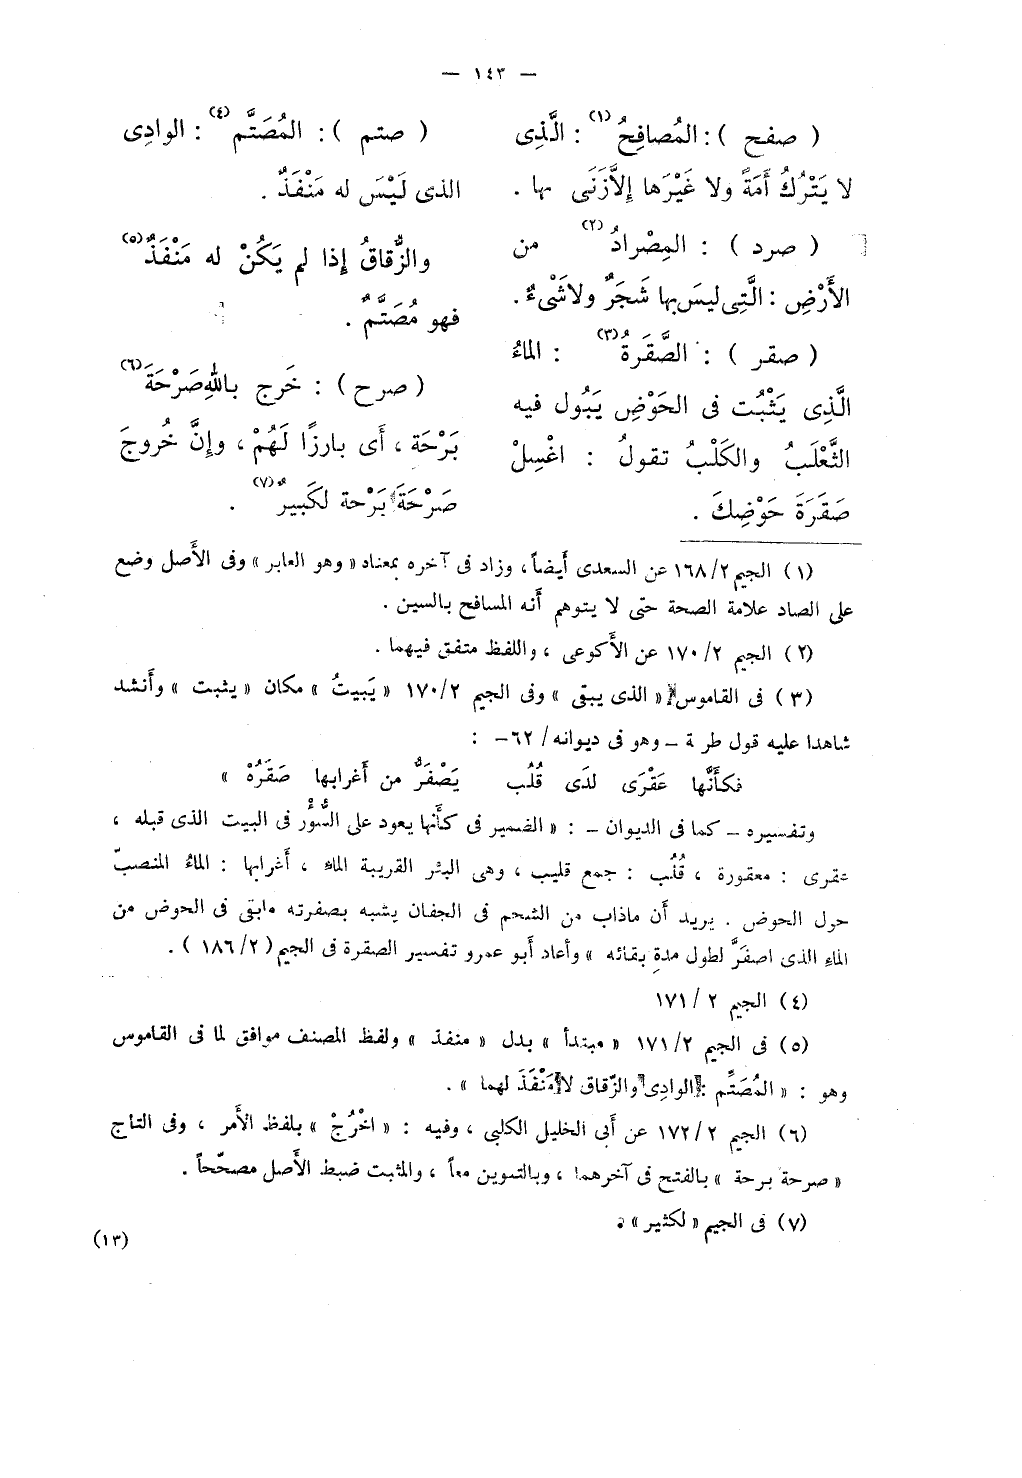 — ١٤٣ —
( صفح ) : المُصافِحُ (١) : الَّذِى
لا يَتْرُكُ أَمَةً ولا غَيْرَها إِلاَّزَنَى بها .
( صرد ) : المِصْرادُ (٢) من
الأَرْضِ : الَّتِى ليسَ بها شَجَرٌ ولاشَىْءٌ .
( صقر ) : الصَّقَرَةُ (٣) : الماءُ
الَّذِى يَثْبُت فى الحَوْضِ يَبُول فيه
الثَّعْلَبُ والكَلْبُ تقولُ : اغْسِلْ
صَقَرَةَ حَوْضِكَ .
( صتم ) : المُصَتَّم (٤) : الوادِى
الذى لَيْسَ له مَنْفَذٌ .
والزُّقاقُ إِذا لم يَكُنْ له مَنْفَذٌ (٥)
فهو مُصَتَّمٌ .
( صرح ) : خَرج بالله صَرْحَةَ (٦)
بَرْحَة ، أَى بارزًا لَهُمْ ، وإِنَّ خُروجَ
صَرْحَةَ بَرْحة لكَبيرٌ (٧) .
(١) الجيم ١٦٨/٢ عن السعدى أيضاً ، وزاد فى آخره بمعناه « وهو العابر » وفى الأصل وضع
على الصاد علامة الصحة حتى لا يتوهم أنه المسافح بالسين .
(٢) الجيم ١٧٠/٢ عن الأكوعى ، واللفظ متفق فيهما .
(٣) فى القاموس « الذى يبقى » وفى الجيم ١٧٠/٢ « يَبيتُ » مكان « يثبت » وأنشد
شاهدا عليه قول طرفة – وهو فى ديوانه/ ٦٢– :
فكأَنَّها عَقْرَى لدَى قُلُب يَصْفَرُّ من أَغرابها صَقَرُهْ »
وتفسيره – كما فى الديوان – : « الضمير فى كأنها يعود على السُّؤْر فى البيت الذى قبله ،
عقرى : معقورة ، قُلُب : جمع قليب ، وهى البئر القريبة الماء ، أغرابها : الماءُ المنصبّ
حول الحوض . يريد أن ماذاب من الشحم فى الجفان يشبه بصفرته مابقى فى الحوض من
الماء الذى اصفَرَّ لطول مدة بقائه » وأعاد أبو عمرو تفسير الصقرة فى الجيم ( ١٨٦/٢ ) .
(٤) الجيم ٢ / ١٧١
(٥) فى الجيم ١٧١/٢ « مبتدأ » بدل « منفذ » ولفظ المصنف موافق لما فى القاموس
وهو : « المُصَتَّم : الوادِى والزّقاق لا مَنْفَذَ لهما » .
(٦) الجيم ١٧٢/٢ عن أبى الخليل الكلبى ، وفيه : « اخْرُجْ » بلفظ الأمر ، وفى التاج
« صرحة برحة » بالفتح فى آخرهما ، وبالتنوين معاً ، والمثبت ضبط الأصل مصحّحاً .
(٧) فى الجيم « لكثير » .
(١٣)